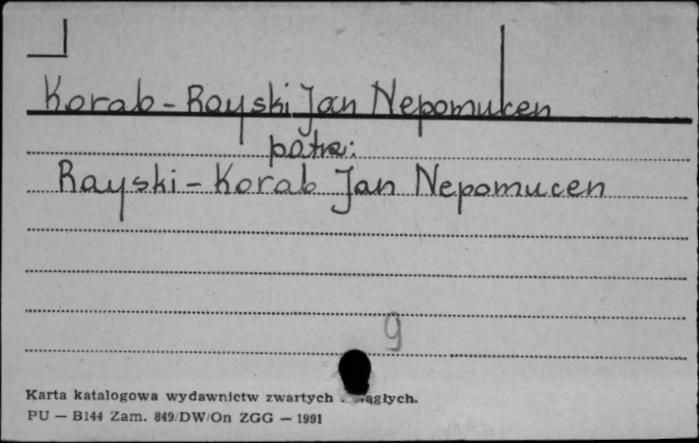 Korab-Rayski Jan Nepomucen
patrz:
Rayski-Korab Jan Nepomucen
9
Karta katalogowa wydawnictw zwartych
PU — B144 Zam. 849/DW/On ZGG — 1991